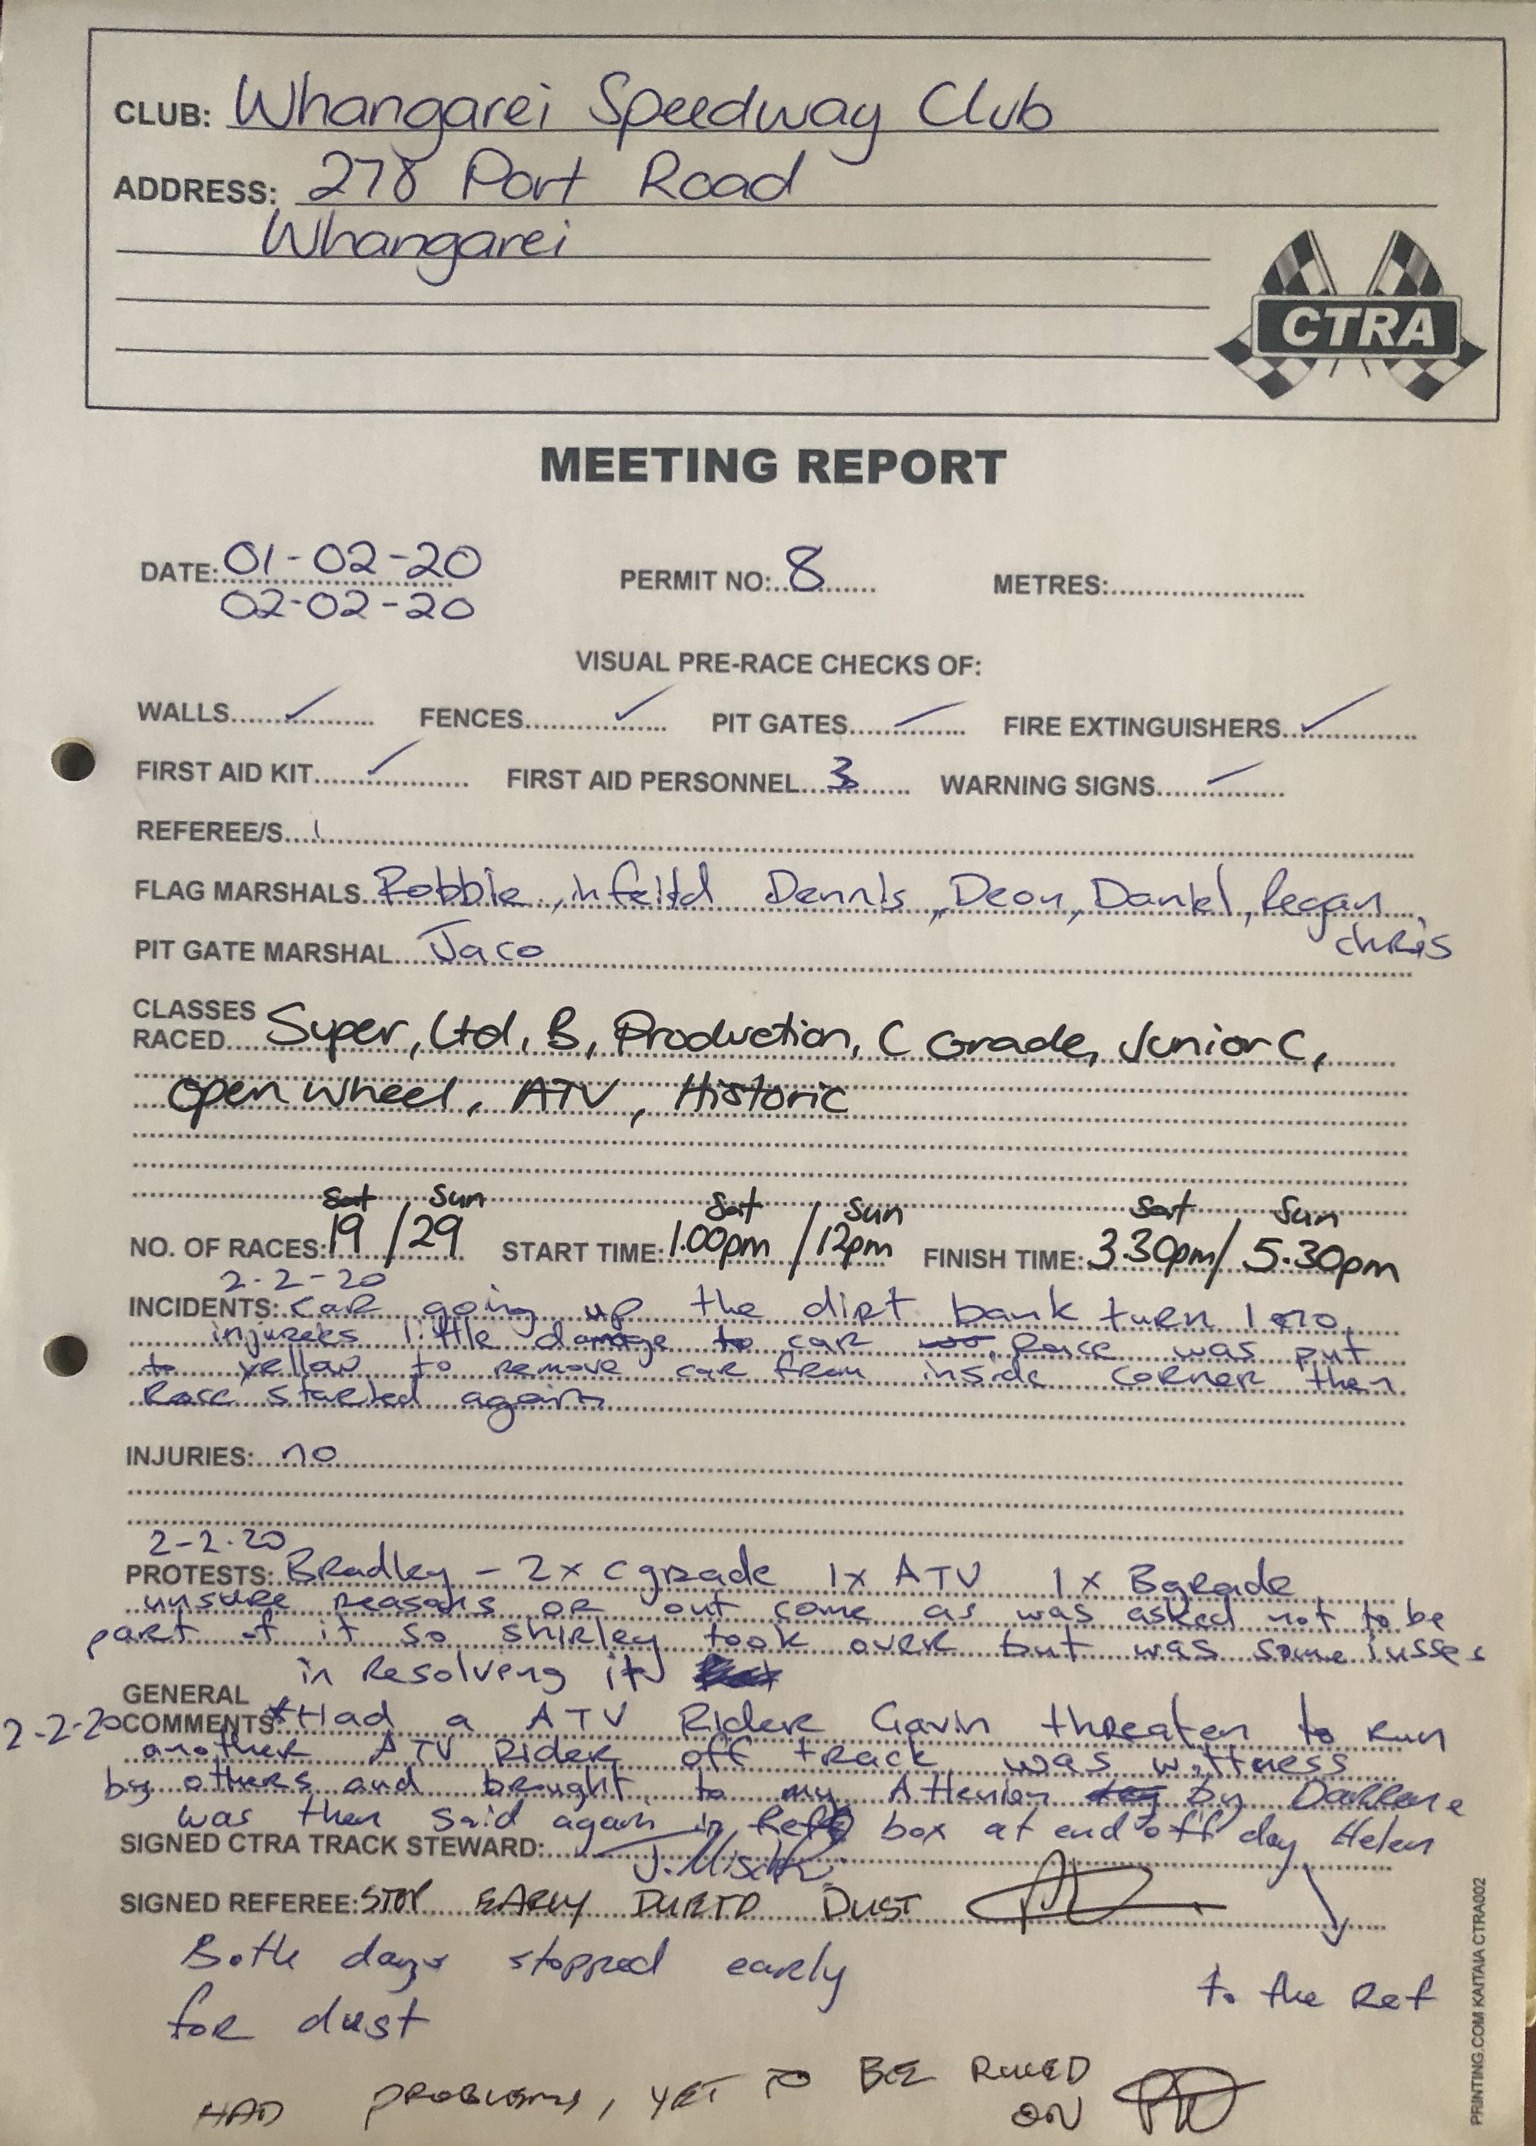 CLUB: Whangarei Speedway Club
ADDRESS: 278 Port Road
Whangarei
CTRA
MEETING REPORT
DATE: 01-02-20 PERMIT NO: 8 METRES:
02-02-20
VISUAL PRE-RACE CHECKS OF:
WALLS ✓ FENCES ✓ PIT GATES ✓ FIRE EXTINGUISHERS ✓
FIRST AID KIT ✓ FIRST AID PERSONNEL 3 WARNING SIGNS ✓
REFEREE/S 1
FLAG MARSHALS Robbie, infeild Dennis, Deon, Daniel, Regan,
chris
PIT GATE MARSHAL Jaco
CLASSES
RACED Super, Ltd, B, Production, C Grade, Junior C,
open wheel, ATV, Historic
Sat Sun Sat Sun Sat Sun
NO. OF RACES: 19 / 29 START TIME: 1.00pm / 12pm FINISH TIME: 3.30pm / 5.30pm
2-2-20
INCIDENTS: car going up the dirt bank turn 1 no
injurees little damage to car Race was put
to yellow to remove car from inside corner then
Race started again
INJURIES: no
2-2-20
PROTESTS: Bradley - 2x c grade 1x ATV 1x B grade
unsure reasons or out come as was asked not to be
part of it so shirley took over but was some
in resolveng it
GENERAL
2-2-20 COMMENTS: *Had a ATV Rider Gavin threaten to run
another ATV Rider off track was wittness
by others and brought to my Attenion by Darrene
was then said again in Ref box at end off day Helen
SIGNED CTRA TRACK STEWARD:
SIGNED REFEREE: STOP EARLY DUE TO DUST
Both days stopped early
to the Ref
for dust
HAD PROBLEMS, YET TO BE RULED
ON
PRINTING.COM KAITAIA CTRA002